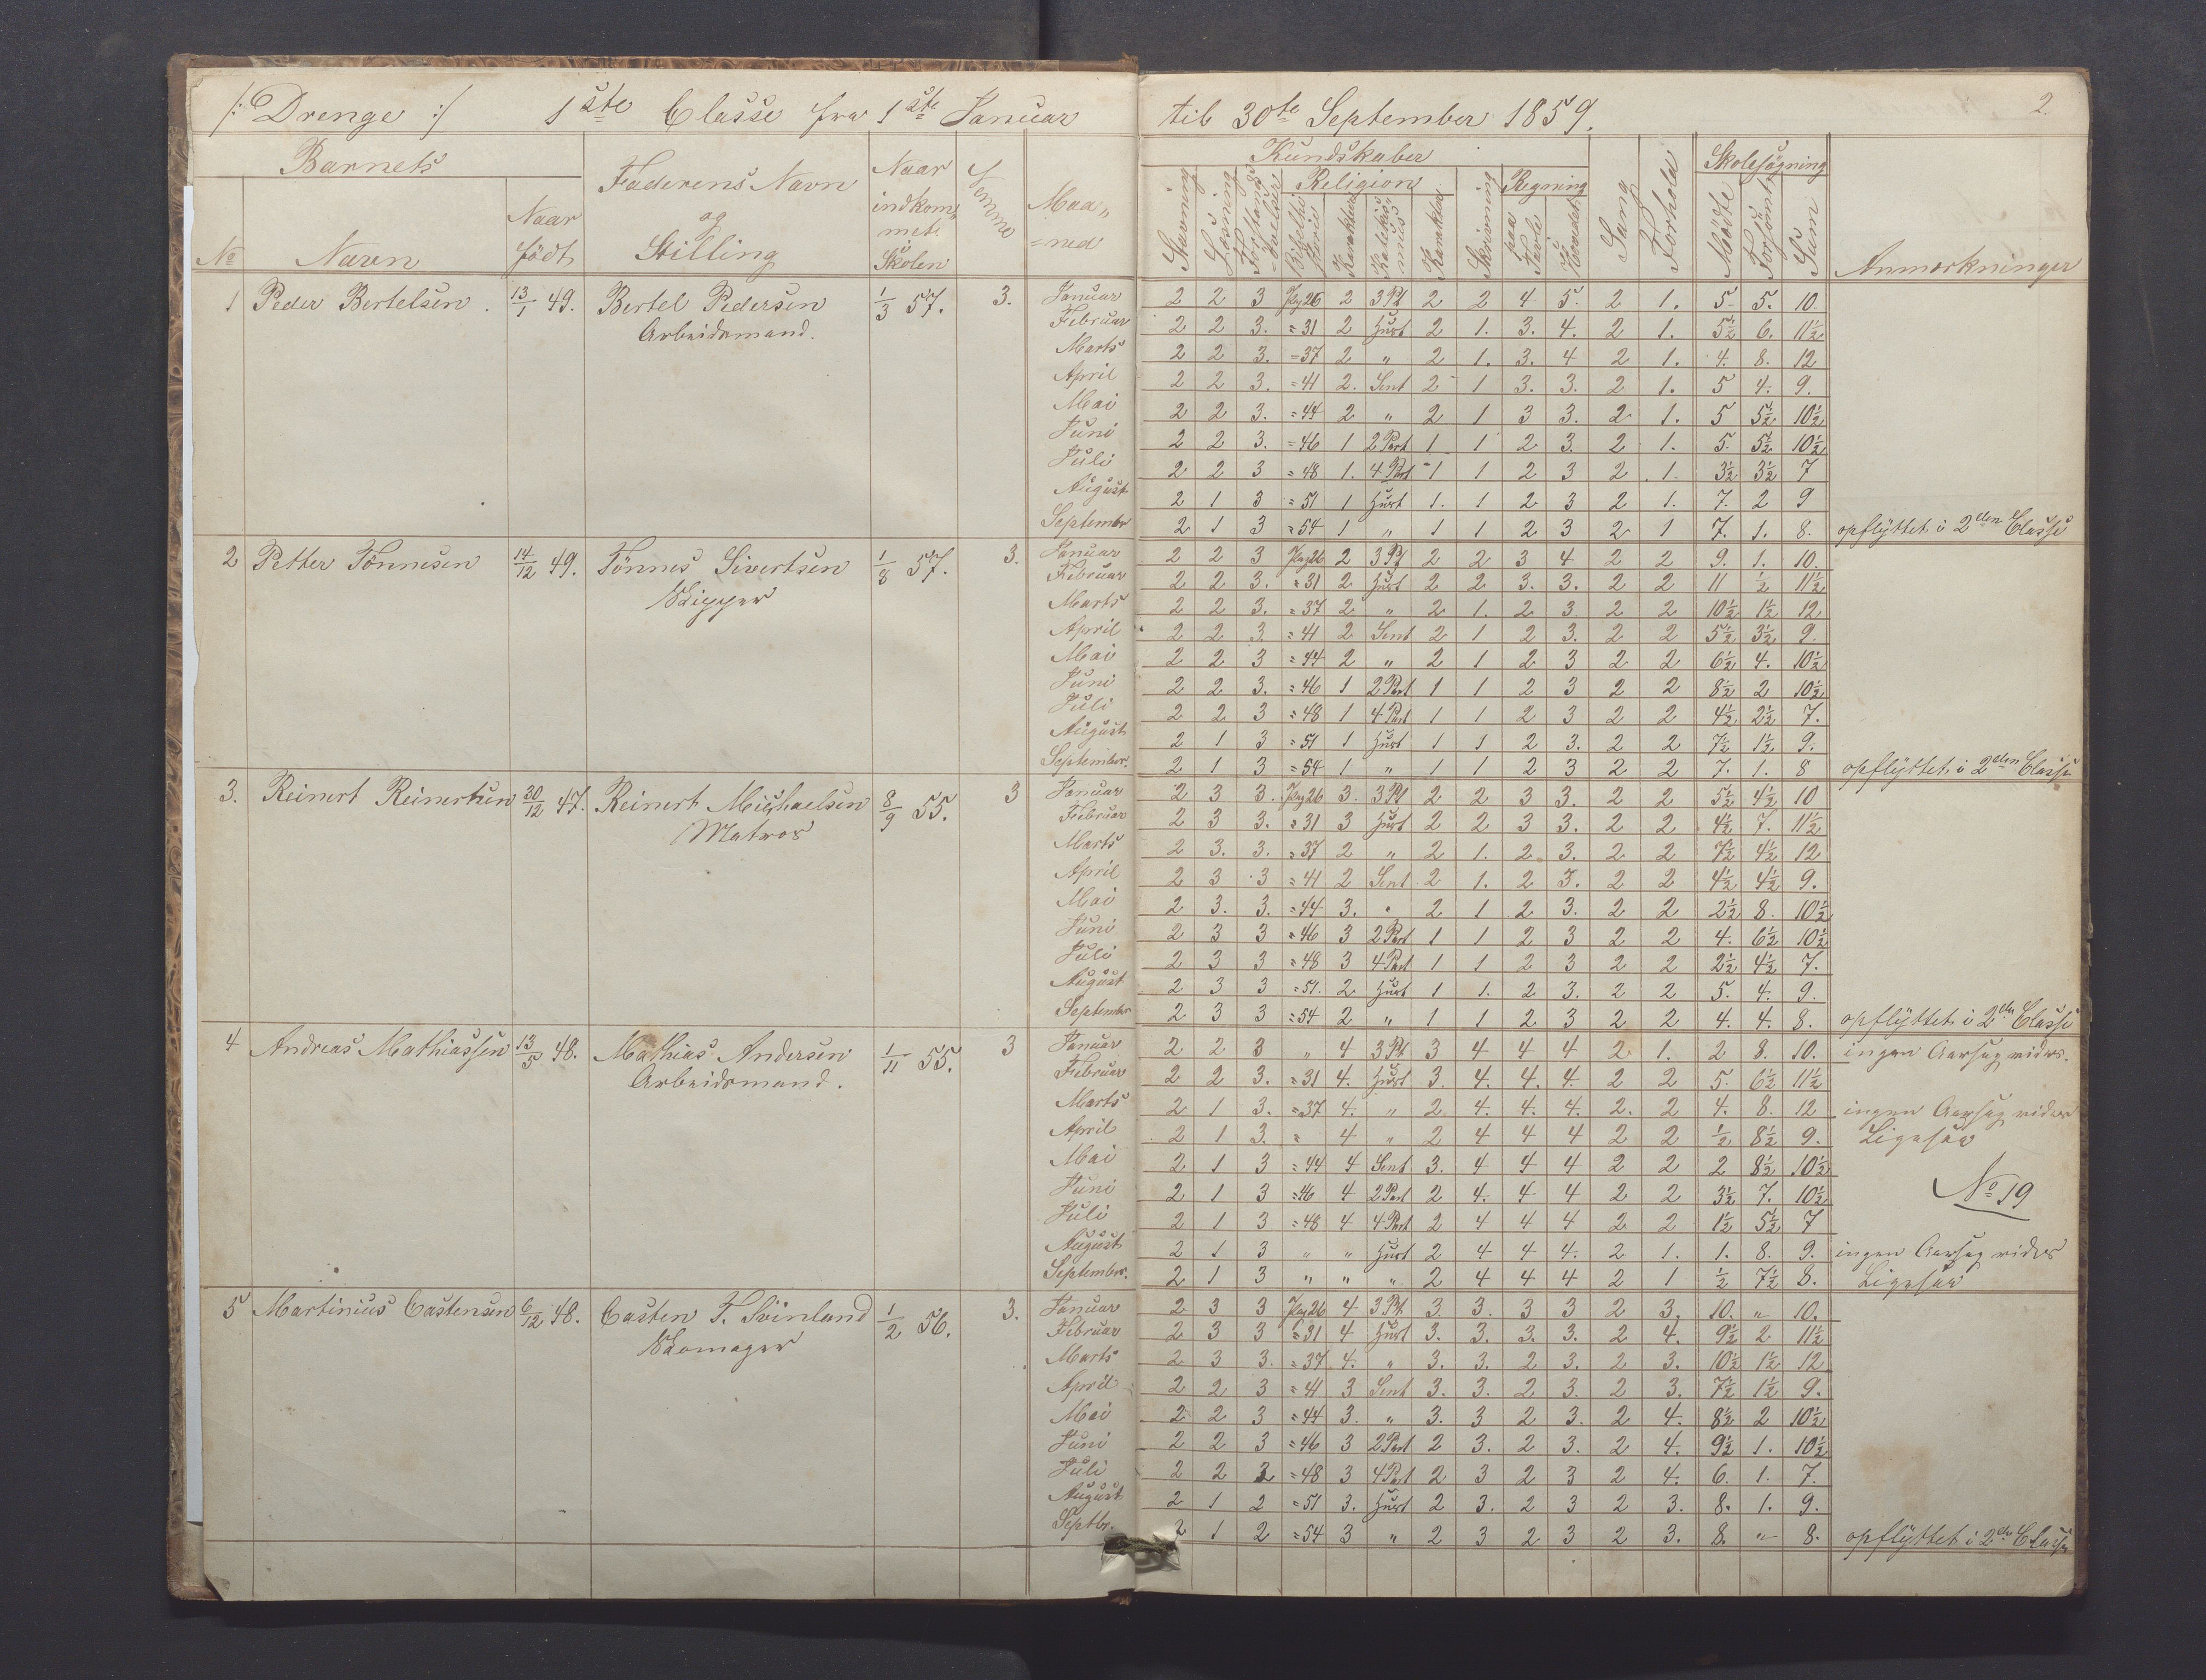 /: Drenge :/ 1ste Classe fra 1ste Januar til 30te September 1859. 2.
Barnets Faderens Navn og Stilling Naar indkommet i Skolen Maaned Kundskaber Sang Forhold Skolesøgning Anmærkninger
No Navn Naar født Stavning Læsning Religion Skrivning Regning Mødte Forsømt Sum
Bibelhistorie Karakter Katekismus Karakter paa Tavle Hovedet
1 Peder Bertelsen 13/1 49. Bertel Pedersen 1/3 57. 3. Januar 2 2 3 Pag 26 2 3 Pt 2 2 4 5. 2 1. 5 5. 10.
Arbeidsmand. Februar 2 2 3. = 31 2 Hust 2 1. 3. 4. 2 1. 5½ 6. 11½
Marts 2 2 3. = 37 2 " 2 1. 3. 4 2 1. 4. 8. 12
April 2 2 3. = 41 2. Sent 2 1 3. 3. 2 1. 5 4. 9.
Mai 2 2 3. = 44 2 " 2 1 3 3. 2 1. 5 5½ 10½
Juni 2 2 3. = 46 1 2 Part 1 1 2 3. 2 1. 5. 5½ 10½
Juli 2 2 3 = 48 1. 4 Part 1 1 2 3 2 1. 3½ 3½ 7
August 2 1 3 = 51 1 Hust 1. 1 2 3 2 1. 7. 2 9
September 2 1 3 = 54 1 " 1 1 2 3 2 1 7. 1. 8. opflyttet i 2den Classe
2 Petter Tönnesen 14/12 49. Tönnes Sivertsen 1/8 57. 3. Januar 2 2 3 Pag 26 2 3 Pt 2 2 3 4 2 2 9. 1. 10.
Skipper Februar 2 2 3. = 31 2 Hust 2 2 3. 3. 2 2 11 ½ 11½
Marts 2 2 3. = 37 2 " 2 1. 2 3 2 2 10½ 1½ 12
April 2 2 3 = 41 2 Sent 2 1 2 3. 2 2 5½ 3½ 9.
Mai 2 2 3 = 44 2 " 2 1 2 3 2 2 6½ 4. 10½
Juni 2 2 3. = 46 1 2 Part 1 1 2 3 2 2 8½ 2 10½
Juli 2 2 3 = 48 1 4 Part 1 1 2 3 2 2 4½ 2½ 7.
August 2 1 3 = 51 1 Hust 1 1 2 3. 2 2 7½ 1½ 9.
September. 2 1 3 = 54 1 " 1 1 2 3 2 2 7. 1. 8 opflyttet i 2den Classe
3. Reinert Reinertsen 30/12 47. Reinert Michaelsen 8/9 55. 3 Januar 2 3 3. Pag 26 3. 3 Pt 2 2 3 3. 2 2 5½ 4½ 10
Matros Februar 2 3 3. = 31 3 Hust 2 2 3 3. 2 2 4½ 7. 11½
Marts 2 3. 3. = 37 2 " 2 1. 2. 3. 2 2 7½ 4½ 12
April 2 3 3 = 41 2 Sent 2 1. 2 3. 2 2 4½ 4½ 9.
Mai 2 3. 3. = 44 3. " 2 1 2 3. 2 2 2½ 8. 10½
Juni 2 3 3 = 46 3 2 Part 1 1 2 3 2 2 4. 6½ 10½
Juli 2 3 3 = 48 3 4 Part 1 1 2 3 2 2 2½ 4½ 7.
August 2 3 3 = 51. 2 Hust 1 1. 2 3. 2 2 5. 4. 9.
September 2 3 3 = 54 2 " 1 1 2 3 2 2 4. 4. 8. opflyttet i 2den Classe
4 Andreas Mathiassen 13/5 48. Mathias Andersen 1/11 55. 3 Januar 2 2 3 " 4 3 Pt 3 4 4 4 2 1. 2 8. 10. ingen Aarsag vides.
Arbeidsmand. Februar 2 2 3. = 31 4. Hust 3. 4. 4. 4. 2 2 5. 6½ 11½
Marts 2 1 3. = 37 4. " 2 4. 4. 4. 2. 2 4. 8. 12 ingen Aarsag vides
April 2 1 3. " 4 " 2 4 4 4 2 2 ½ 8½ 9. Ligesaa
Mai 2 1 3 = 44 4 Sent 3. 4 4 4 2 2 2 8½ 10½
Juni 2 1 3 = 46 4 2 Part 2 4. 4 4 2 2 3½ 7. 10½ No 19
Juli 2 1 3 = 48 4 4 Part 2 4 4 4 2 2 1½ 5½ 7
August 2 1 3 " " Hust 2 4 4 4. 2 1. 1. 8. 9. ingen Aarsag vides
September. 2 1 3 " " " 2 4 4 4 2 1 ½ 7½ 8. Ligesaa
5 Martinius Castensen 6/12 48. Casten T. Svinland 1/2 56. 3. Januar 2 3 3 Pag 26 4. 3 Pt. 3. 3. 3 3 2 3. 10. " 10.
Skomager Februar 2 3 3 = 31 4 Hust 3. 3. 3. 3. 2 4. 9½ 2 11½
Marts 2 3 3. = 37 4. " 3. 3. 2 3. 2 3. 10½ 1½ 12
April 2 2 3 = 41 3 Sent 3. 3. 2 3. 2 3. 7½ 1½ 9.
Mai 2 2 3 = 44 3. " 3. 3 2 3. 2 4. 8½ 2 10½
Juni 2 2 3 = 46 3 2 Part 2 3. 2 3. 2 4. 9½ 1. 10½
Juli 2 2 2 = 48 3 4 Part 2 3 2 3 2 4. 6. 1. 7.
August 2 1 2 = 51 3. Hust 2 3. 2 3 2 3. 8. 1. 9.
Septbr. 2 1 2 = 54 3 " 2 3 2 3 2 3. 8. " 8. opflyttet i 2den Classe